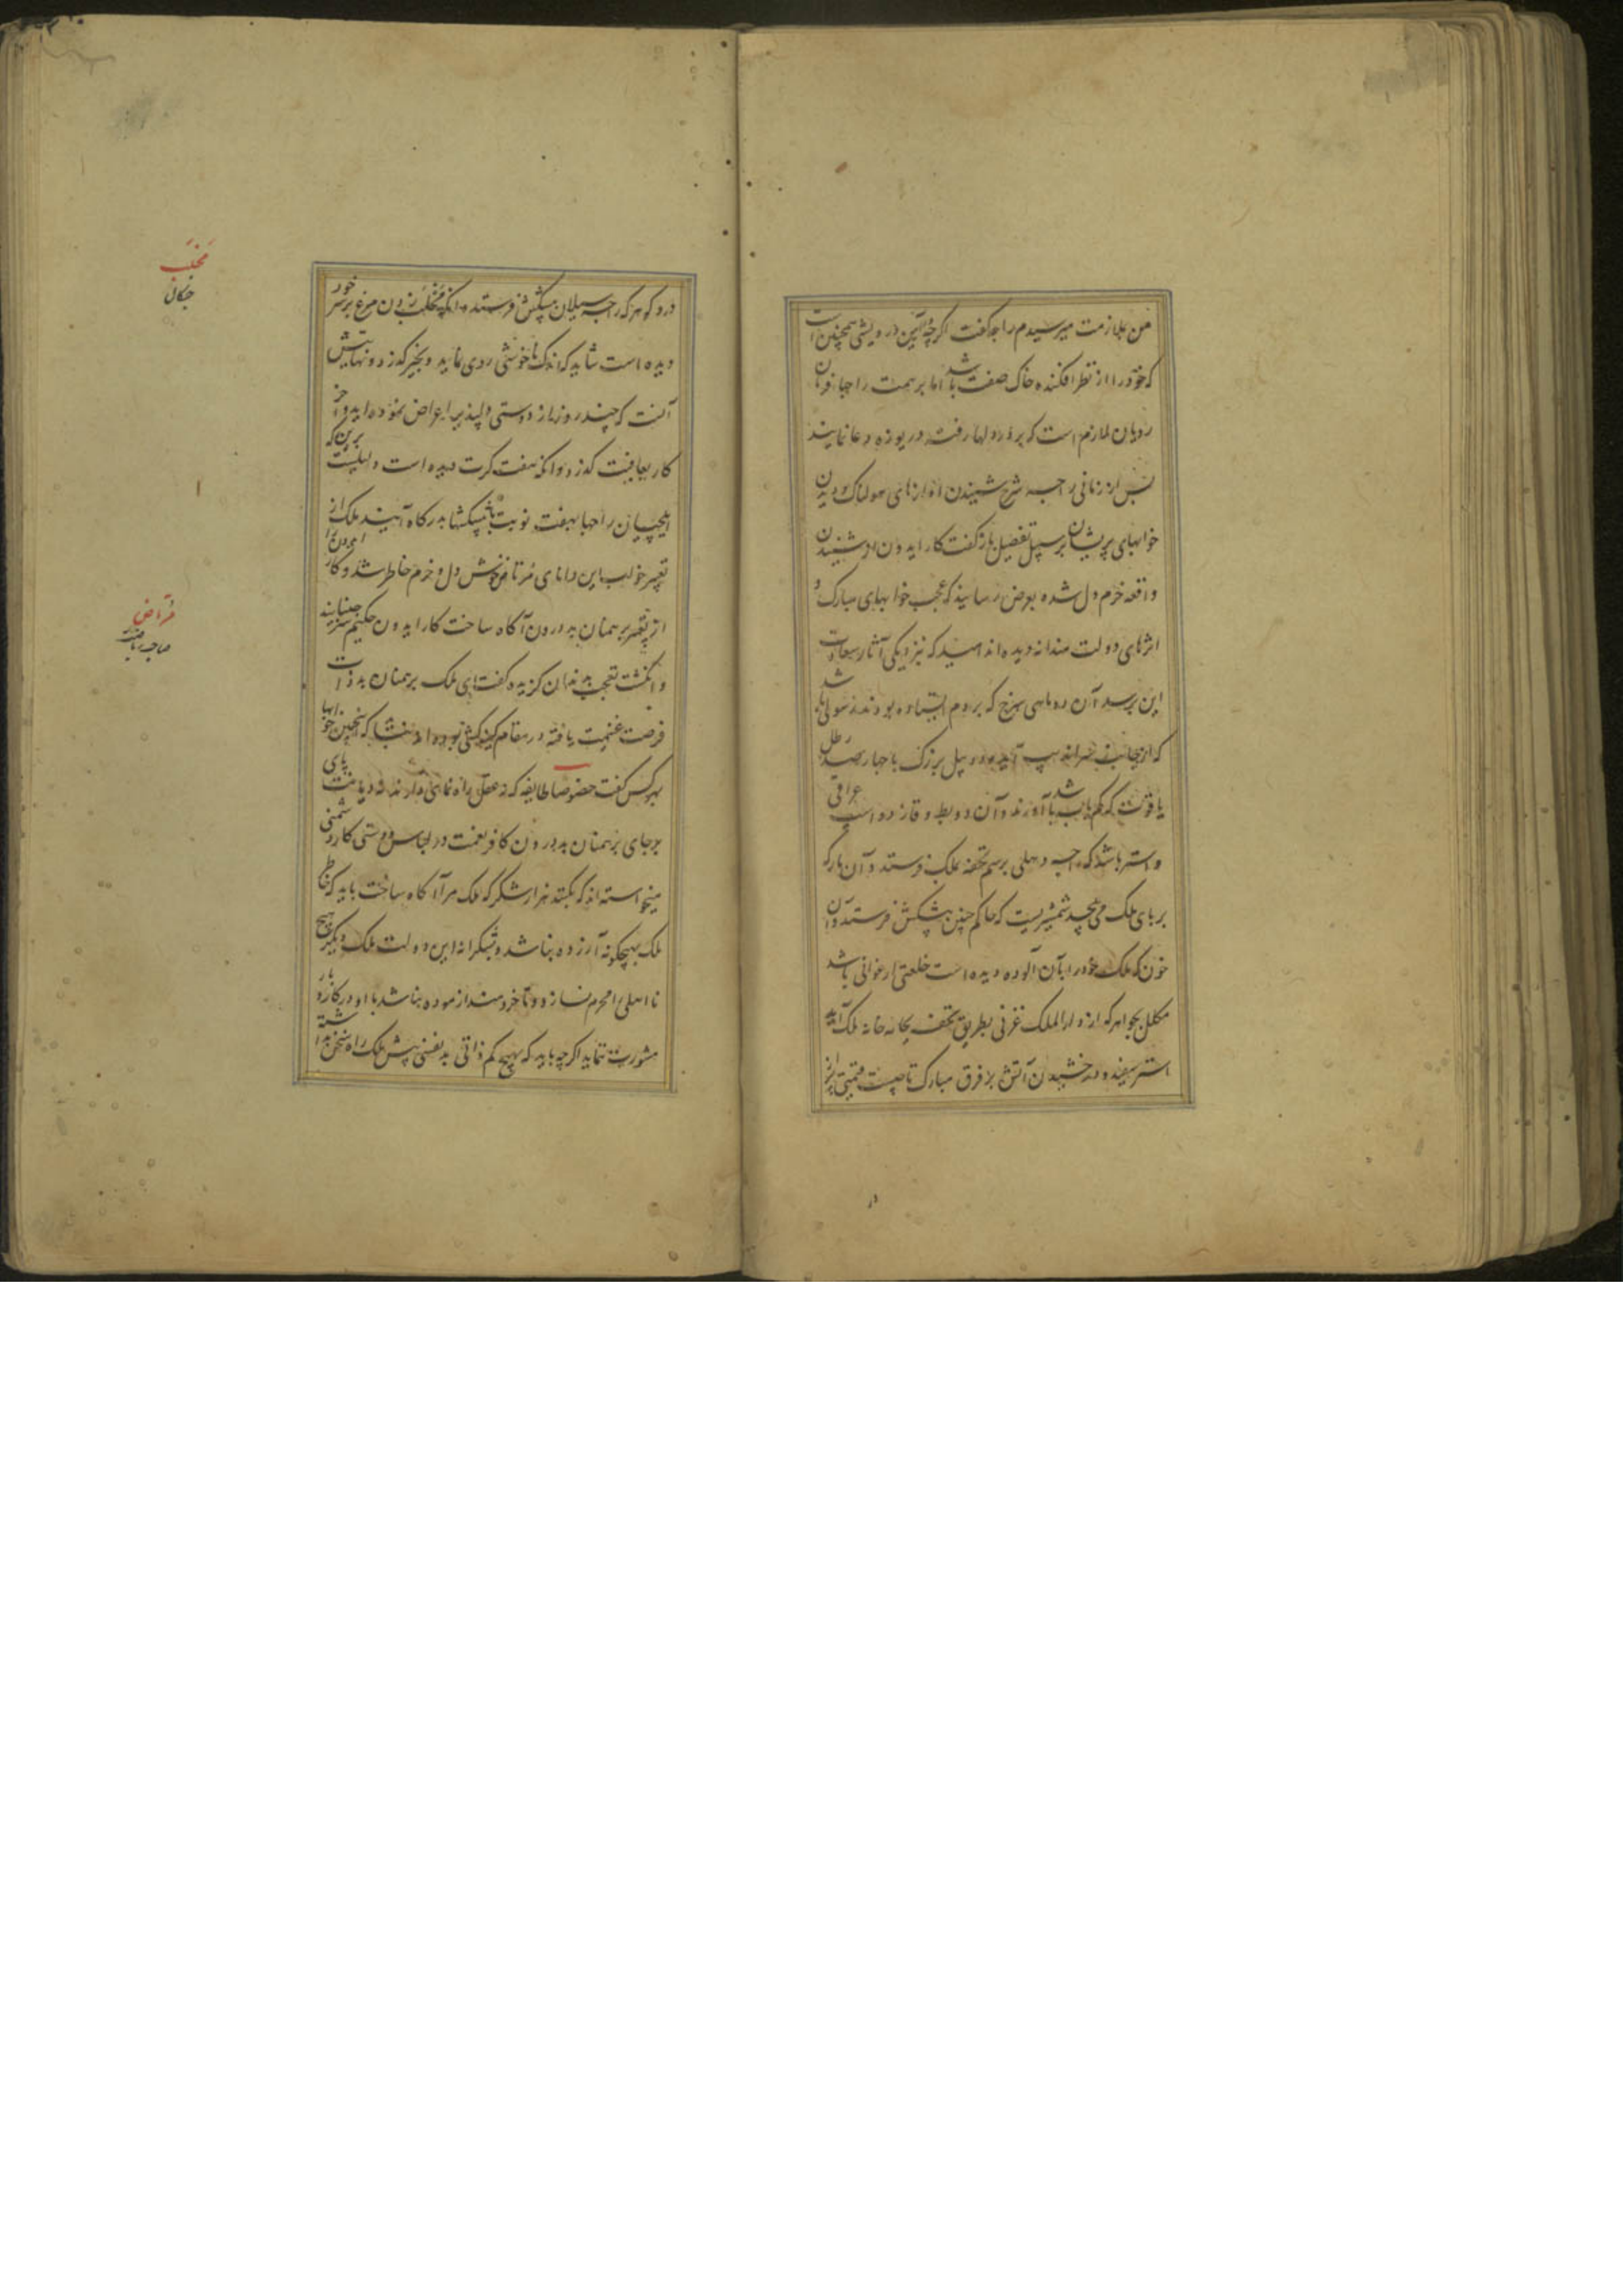 من بملازمت میرسیدم راجه گفت اگرچه آئین درویشی همچنین است
که خود را از نظر افکنده خاک صفت باشد اما بر همت راجها فرمان
روایان لازم است که بر در دلها رفته دریوزه دعا نمایند
پس از زمانی راجه شرح شنیدن آوازهای هولناک و دیدن
خوابهای پریشان بر سبیل تفصیل بازگفت کارایدون از شنیدن
واقعه خرم دل شده بعرض رسانید که عجب خوابهای مبارک و
اثرهای دولت مندانه دیده اند امید که نزدیکی آثار سعادت
این برسد آن دو ماهی سرخ که بر دم ایستاده بودند رسولی باشد
که از جانب سراندیپ آید و دو پیل بزرگ با چهارصد رطل
یاقوت که کم یاب باشد آورند و آن دو بط و قاز دو اسپ عراقی
و استر باشد که راجه دهلی برسم تحفه بملک فرستد و آن مار که
بر پای ملک می پیچد شمشیریست که حاکم چین پیشکش فرستد و آن
خون که ملک خود را بآن آلوده دیده است خلعتی ارغوانی باشد
مکلل بجواهر که از دارالملک غزنی بطریق تحفه بجامه خانه ملک آید
استر سفید و درخشیدن آتش بر فرق مبارک تاجیست قیمتی پر از
در و گوهر که راجه سیلان پیشکش فرستد و آنکه مخلب زدن مرغ بر سر خود
دیده است شاید که اندک ناخوشی روی نماید و بخیر گذرد و نهایتش
آنست که چند روز از دوستی دلپذیر اعراض نموده اید و آخر
کار بعافیت گذرد و آنکه هفت کرت دیده است دلیلیست برین که
ایلچیان راجها بهفت نوبت با پیشکشها بدرگاه آیند ملک از
تعبیر خواب این دانای مرتاض خوش دل و خرم خاطر شد و کارایدون را
از تعبیر برهمنان بد درون آگاه ساخت کارایدون حکیم سر جنبانید
و انگشت تعجب بدندان گزیده گفت ای ملک برهمنان بد ذات
فرصت غنیمت یافته در مقام کینه کشی بوده اند نشاید که اینچنین خوابها
بهر کس گفت خصوصا طایفه که نه عقل راه نمائی دارند نه دیانت پای
برجای برهمنان بد درون کافر نعمت در لباس دوستی کار دشمنی
میخواسته اند که بکنند هزار شکر که ملک مرا آگاه ساخت باید که خاطر
ملک بهیچگونه آزرده نباشد و بشکرانه این دولت ملک دیگر هیچ
نا اهلی را محرم نسازد و تا خردمند آزموده نباشد با او در کاری
مشورت ننماید اگرچه باید که هیچ کم ذاتی بد نفسی پیش ملک راه سخن نداشته
مخلب
چنگال
مرتاض
صاحب ریاضت